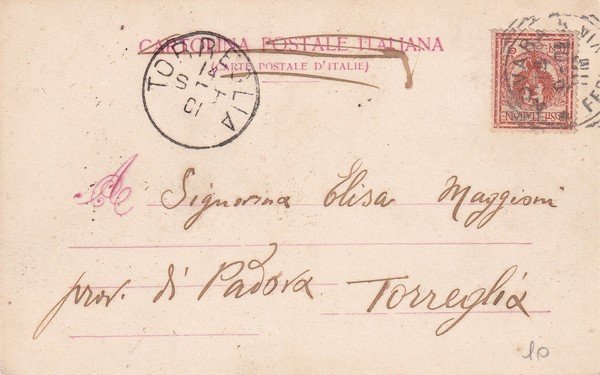 CARTOLINA POSTALE ITALIANA
(CARTE POSTALE D'ITALIE)
TORREGLIA
14
SET
01
A Signorina Elisa Maggioni
prov. di Padova Torreglia
10